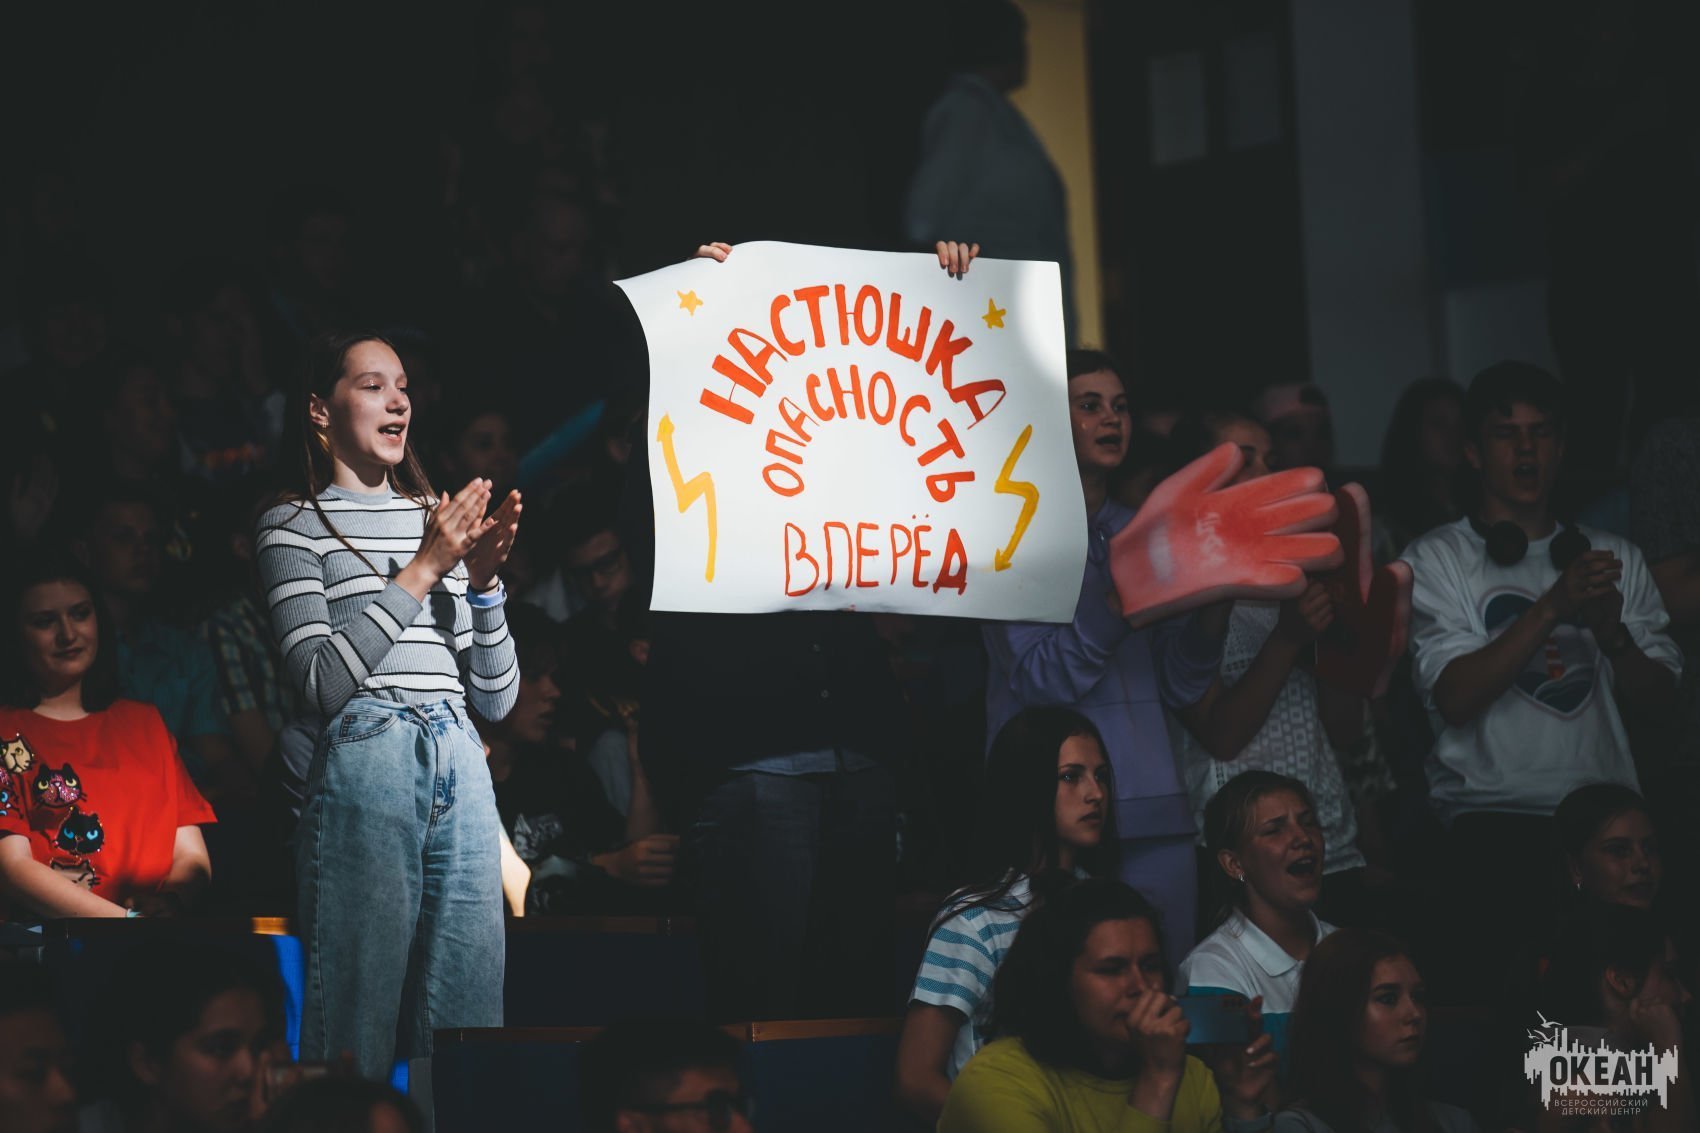 НАСТЮШКА
ОПАСНОСТЬ
ВПЕРЁД
ОКЕАН
ВСЕРОССИЙСКИЙ
ДЕТСКИЙ ЦЕНТР